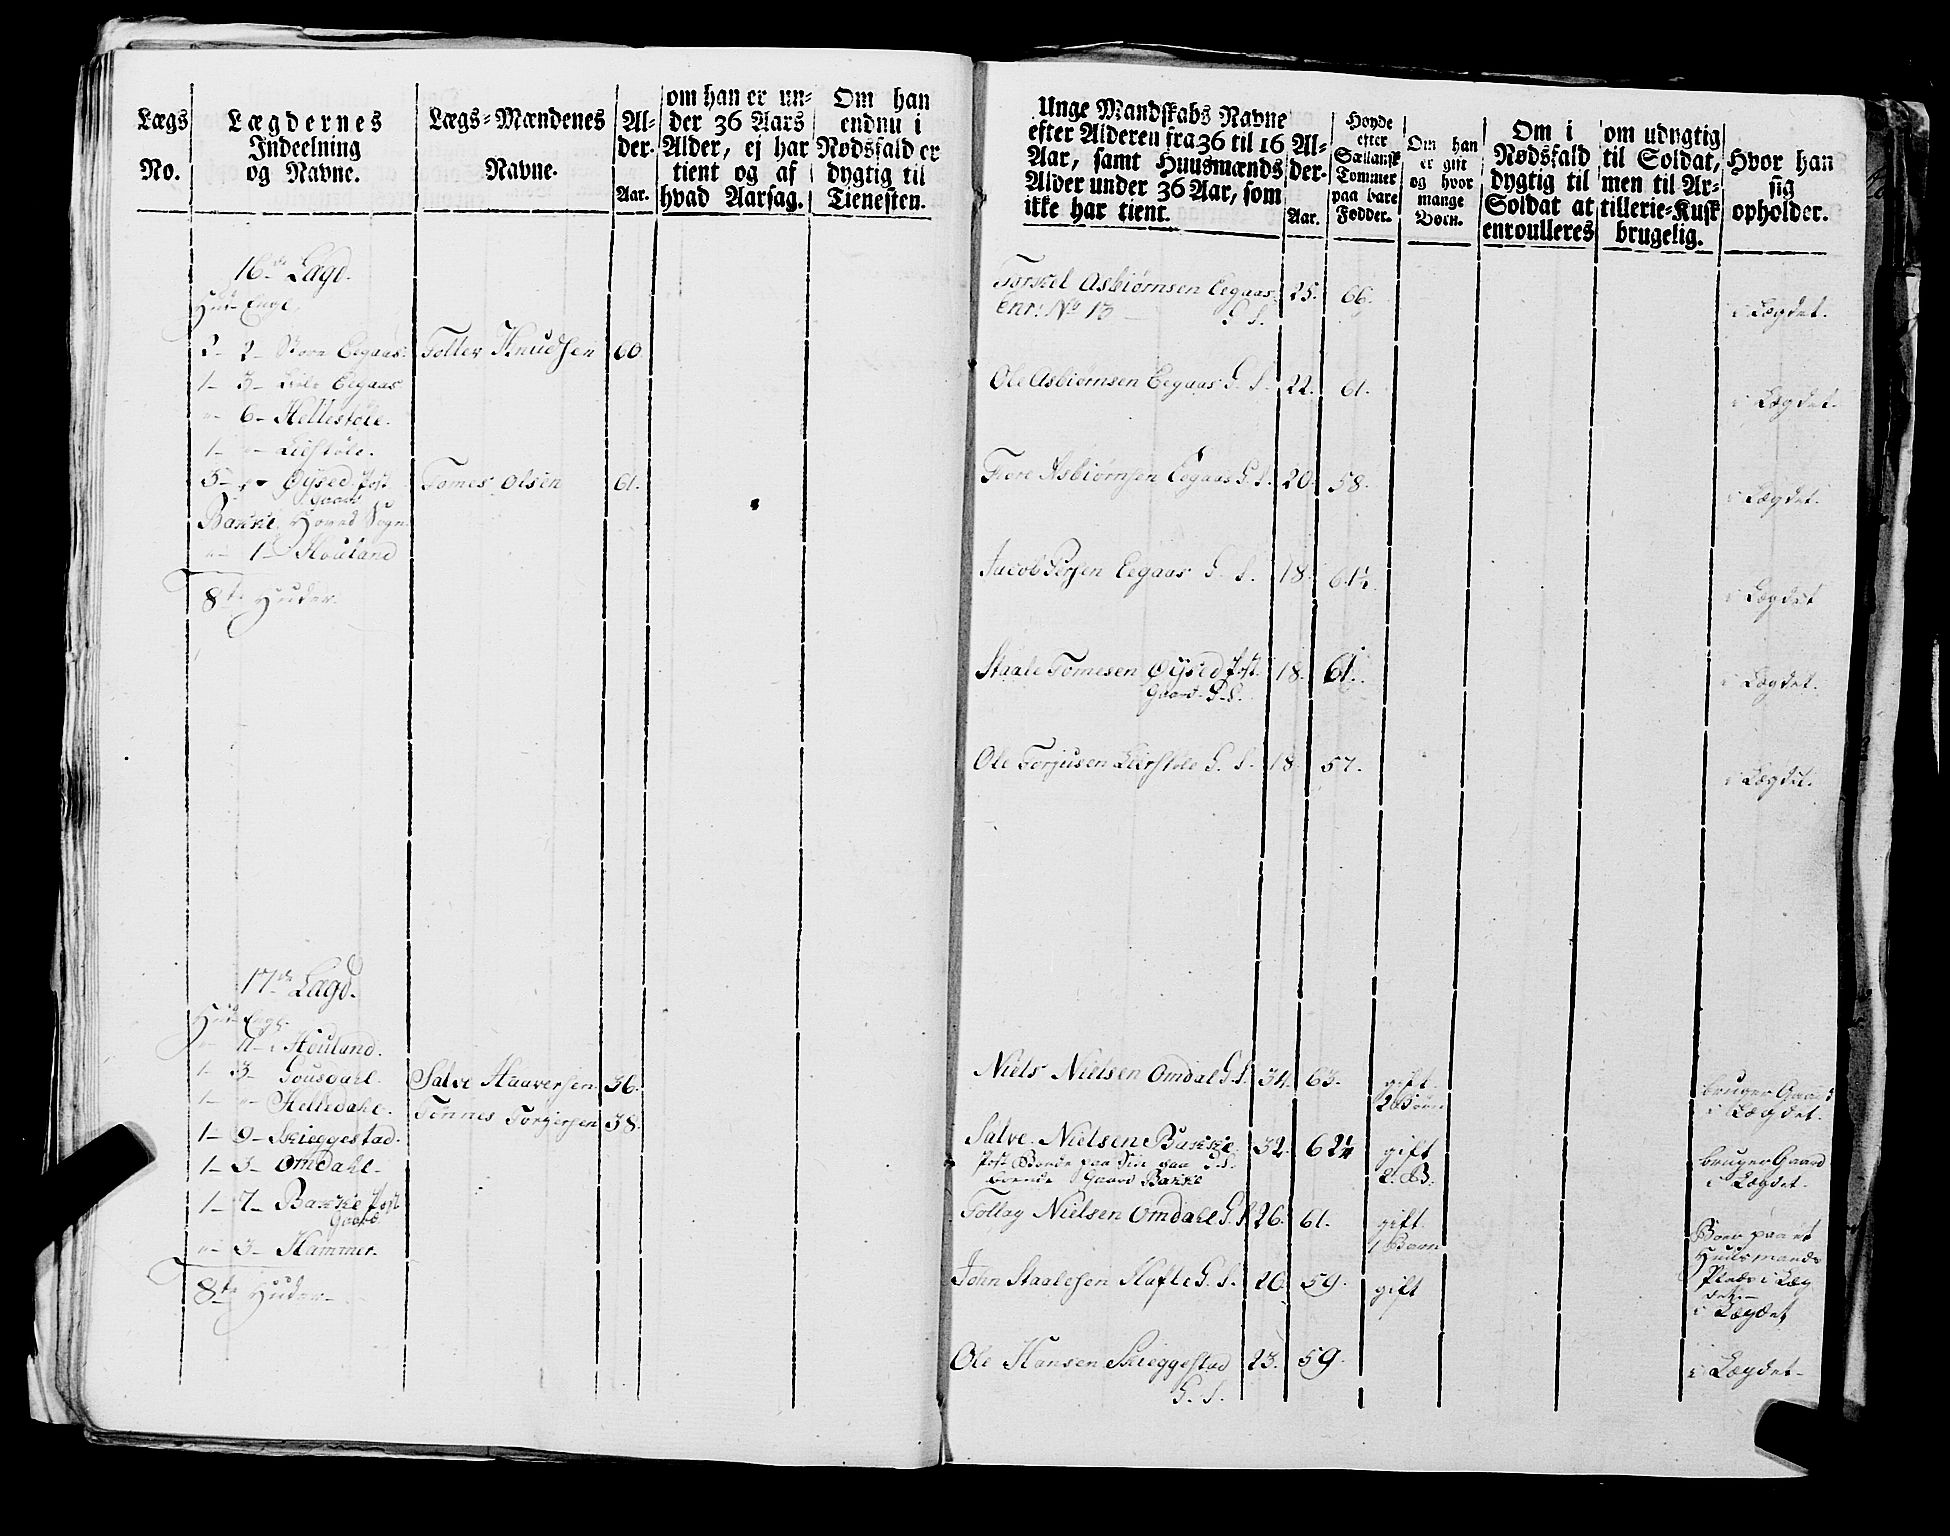 Lægs
No.
Lægdernes
Indeelning
og Navne.
Lægs-Mændenes
Navne.
Al-
der.
Aar.
om han er un-
der 36 Aars
Alder, ej har
tient og af
hvad Aarsag.
Om han
endnu i
Nødsfald er
dygtig til
Tienesten.
16de Lægd.
Hud: Engl.
2- 2- Store Eegaas.
Tollev Knudsen 60.
1- 3- Liele Eegaas
" 6- Hellestöle.
1- "- Lielstöle.
3- "- Öÿsed Post
Gaard
Tomes Olsen 61.
Bakke Hoved Sogn
" 1- Houland
8te Huder.
17de Lægd.
Hud: Engl.
Houland.
1- 3- Gousdahl.
Salve Haaversen 36.
1- "- Helledahl.
Tönnes Torgiersen 38.
1- 9- Skieggestad.
1- 3- Omdahl.
1- 7- Bakke Post
Gaard
" 3- Hammer.
8te Huder
Unge Mandskabs Navne
efter Alderen fra 36 til 16
Aar, samt Huusmænds
Alder under 36 Aar, som
ikke har tient.
Al-
der.
Aar.
Høyde
efter
Sællansk
Tommer
paa bare
Fødder.
Om han
er gift
og hvor
mange
Børn.
Om i
Nødsfald
dygtig til
Soldat at
enroulleres
om udygtig
til Soldat,
men til Ar-
tillerie-Kusk
brugelig.
Hvor han
sig
opholder.
Torkel Asbiörnsen Eegaas 25. 66.
enr: No 13 G. S.
i Lægdet.
Ole Asbiörnsen Eegaas G. S. 22. 61.
i Lægdet.
Tore Asbiörnsen Eegaas G. S. 20. 58.
i Lægdet.
Jacob Persen Eegaas G. S. 18. 61½
i Lægdet
Staale Tomesen Öÿsed Post 18. 61.
Gaard G. S.
i Lægdet.
Ole Torjusen Lielstöle G. S. 18. 57.
i Lægdet.
Niels Nielsen Omdal G. S. 34. 63. gift
2 Börn
bruger Gaard
i Lægdet.
Salve Nielsen Bakke 32. 62¼ gift
2. B.
Gaard Bakke
bruger Gaard
i Lægdet.
Tollag Nielsen Omdahl G. S. 26. 61. gift
1 Barn
Boer paa et
Huusmands
Plads i Læg
det.
John Staalesen G. S. 26. 59. gift
i Lægdet
Ole Hansen Skieggestad 23. 59.
G. S.
i Lægdet